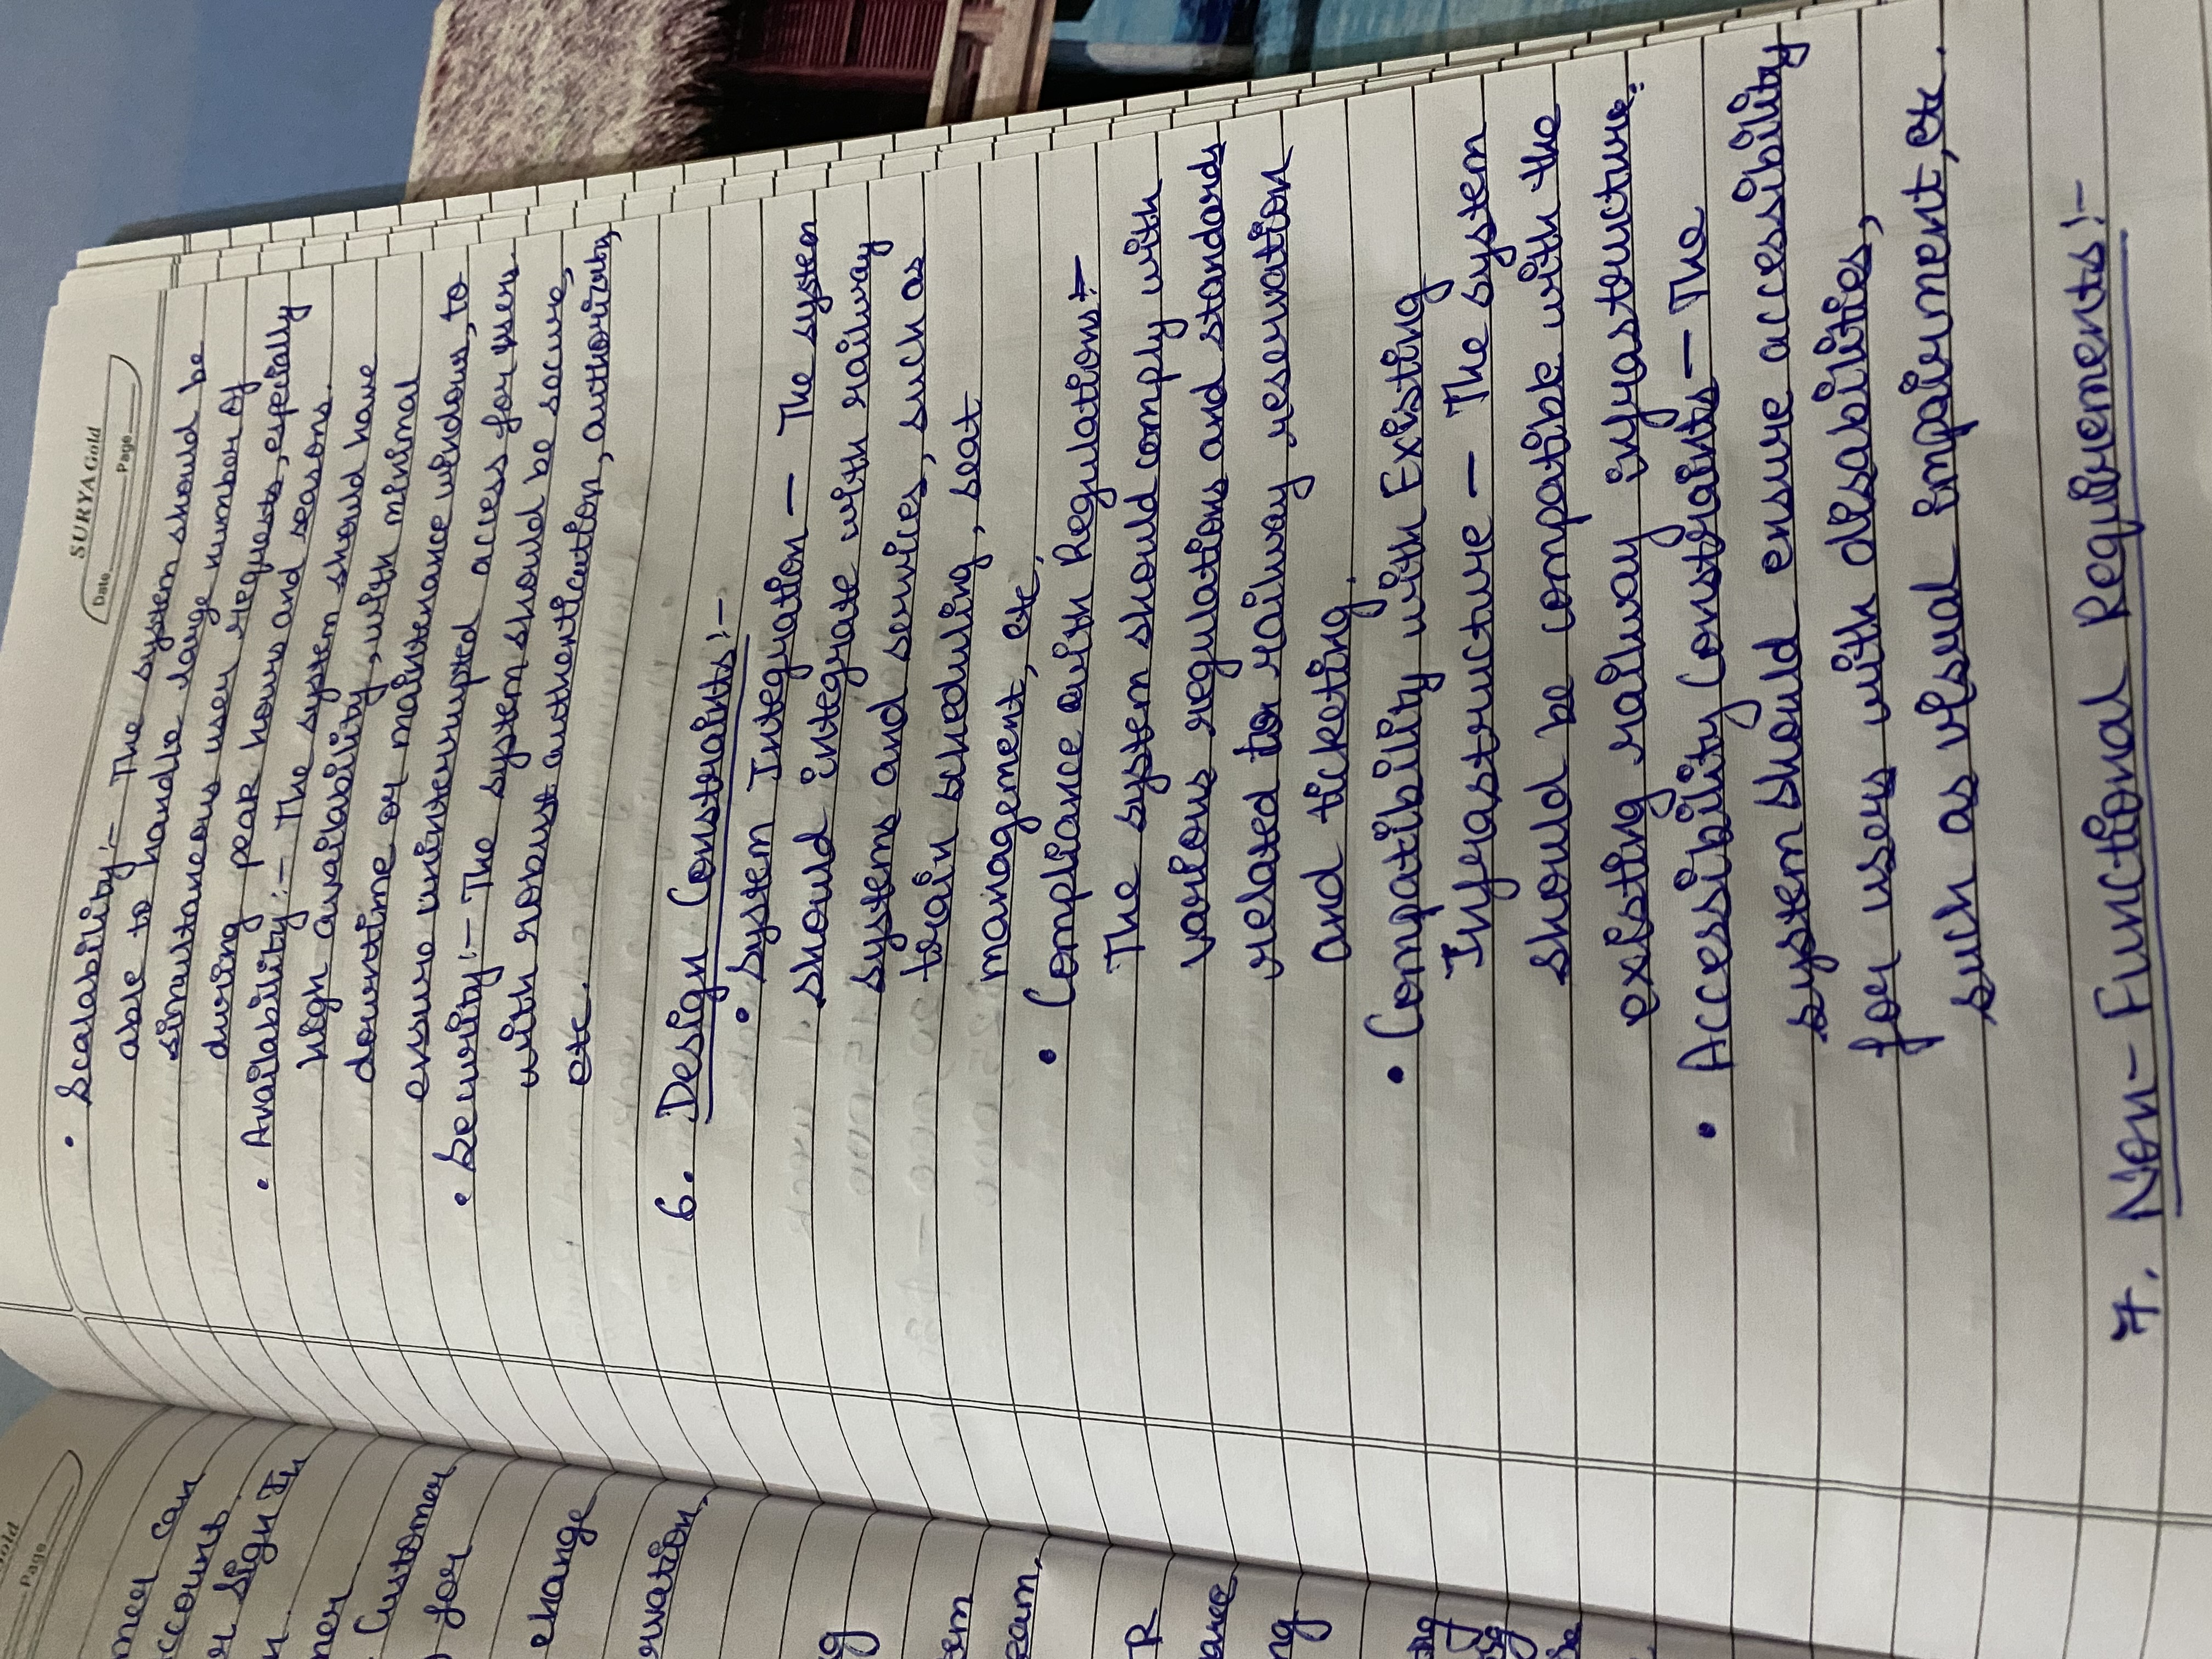 Gold
Page
mer can
ccount.
r Sign In
n.
mer
Customer
for
change
rvation,
g
tem
eam,
R
ance
ng
SURYA Gold
Date
Page
• Scalability:- The system should be
able to handle large number of
simultaneous user requests, especially
during peak hours and seasons.
• Availability:- The system should have
high availability, with minimal
downtime or maintenance windows, to
ensure uninterrupted access for users.
• Security:- The system should be secure,
with robust authentication,
etc.
6. Design Constraints:-
• System Integration - The system
should integrate with railway
systems and services, such as
train scheduling, seat
management, etc,
• Compliance with Regulations:-
The system should comply with
various regulations and standards
related to railway reservation
and ticketing.
• Compatibility with Existing
Infrastructure - The system
should be compatible with the
existing railway infrastructure.
• Accessibility Constraints - The
system should ensure accessibility
for users with disabilities,
such as visual impairment, etc.
7. Non-Functional Requirements:-